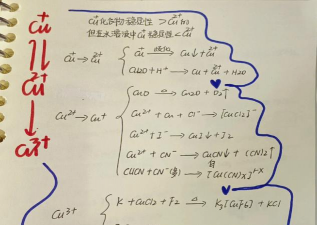 Cu⁺化合物稳定性 > Cu²⁺的
但在水溶液中Cu⁺稳定性 < Cu²⁺
Cu⁺
Cu²⁺
Cu³⁺
Cu⁺→Cu²⁺
Cu⁺ → Cu↓ + Cu²⁺
Cu₂O + H⁺ → Cu + Cu²⁺ + H₂O
Cu²⁺→Cu⁺
CuO △→ Cu₂O + O₂↑
Cu²⁺ + Cu + Cl⁻ → [CuCl₂]⁻
Cu²⁺ + I⁻ → CuI↓ + I₂
Cu²⁺ + CN⁻ → CuCN↓ + (CN)₂↑
CuCN + CN⁻ → [Cu(CN)x]¹⁻ˣ
Cu³⁺
K + CuCl₂ + F₂ △→ K₃[CuF₆] + KCl